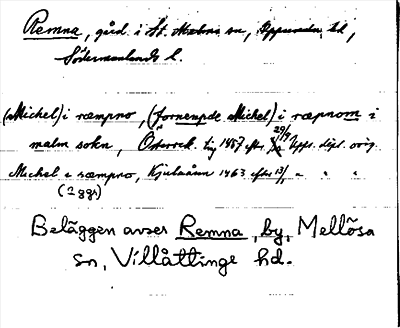 Remna, gård i St. Malms sn, Oppunda hd,
Södermanlands l.
(Michel) i ræmpno, (fornempde Michel) i ræpnom i
malm sokn, Österrek. tig 1457 efter 29/9 Upps. dipl. orig.
Mechel i ræmpno, Kjulaån 1463 efter 13/1 " " "
(2 ggr)
Beläggen avser Remna, by, Mellösa
sn, Villåttinge hd.